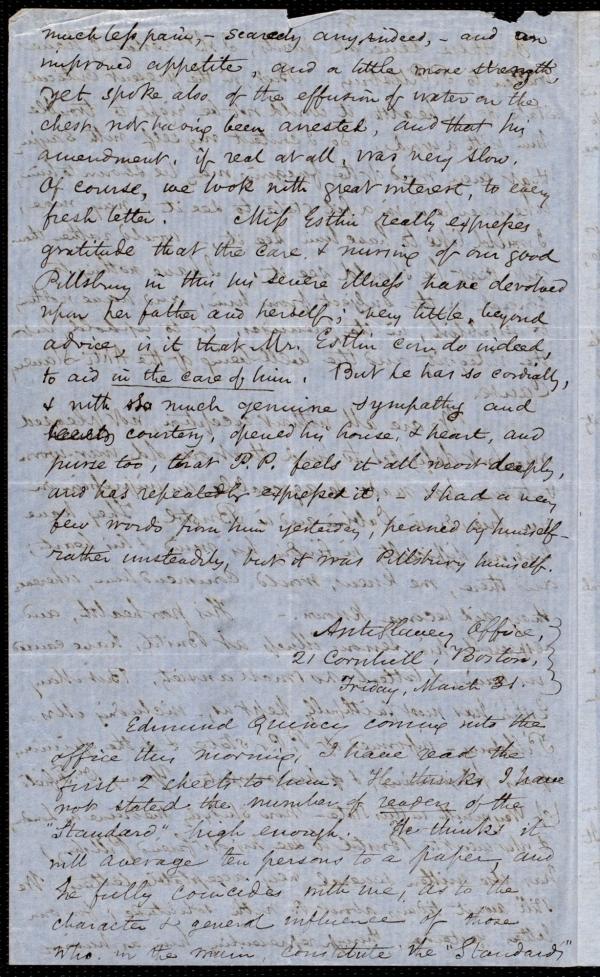 much less pain, - scarcely any, indeed, - and an
improved appetite, and a little more strength,
yet spoke also of the effusion of water on the
chest, not having been arrested, and that his
amendment, if real at all, was very slow.
Of course, we look with great interest, to every
fresh letter. Miss Estlin really expresses
gratitude that the care & nursing of our good
Pillsbury in this his severe illness have devolved
upon her father and herself; very little, beyond
advice, is it that Mr. Estlin can do indeed,
to aid in the care of him. But he has so cordially,
& with so much genuine sympathy and
courtesy, opened his house, & heart, and
purse too, that P.P. feels it all most deeply,
and has repeatedly expressed it. I had a very
few words from him yesterday, penned by himself -
rather unsteadily, but it was Pillsbury himself.
AntiSlavery Office,
21 Cornhill, Boston,
Friday, March 31.
Edmund Quincy coming into the
office this morning, I have read the
first 2 sheets to him. He thinks I have
not stated the number of readers of the
"Standard" high enough. He thinks it
will average ten persons to a paper, and
he fully coincides with me, as to the
character & general influence of those
who, in the main, constitute the "Standard's"